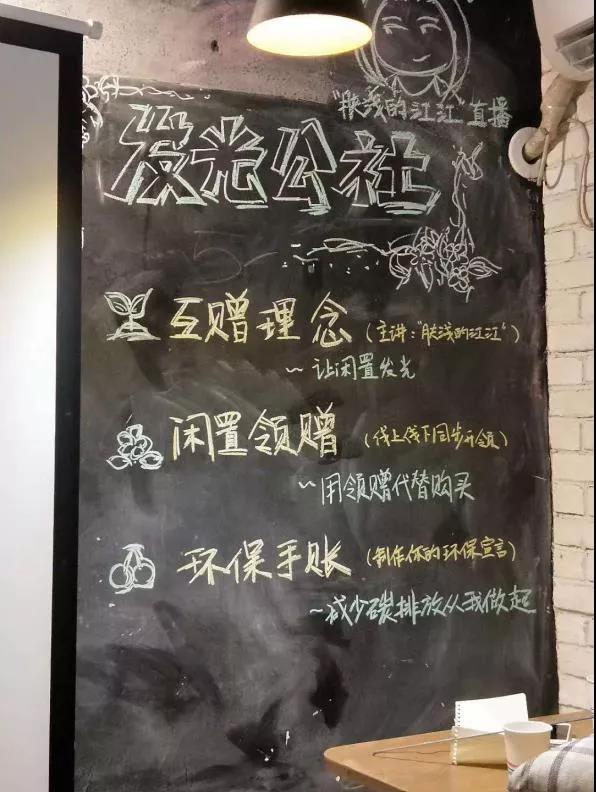 "肤浅的江江"直播
发光公社
互赠理念 (主讲:"肤浅的江江")
~让闲置发光
闲置领赠 (线上线下同步开领)
~用领赠代替购买
环保手账 (制作你的环保宣言)
~减少碳排放从我做起